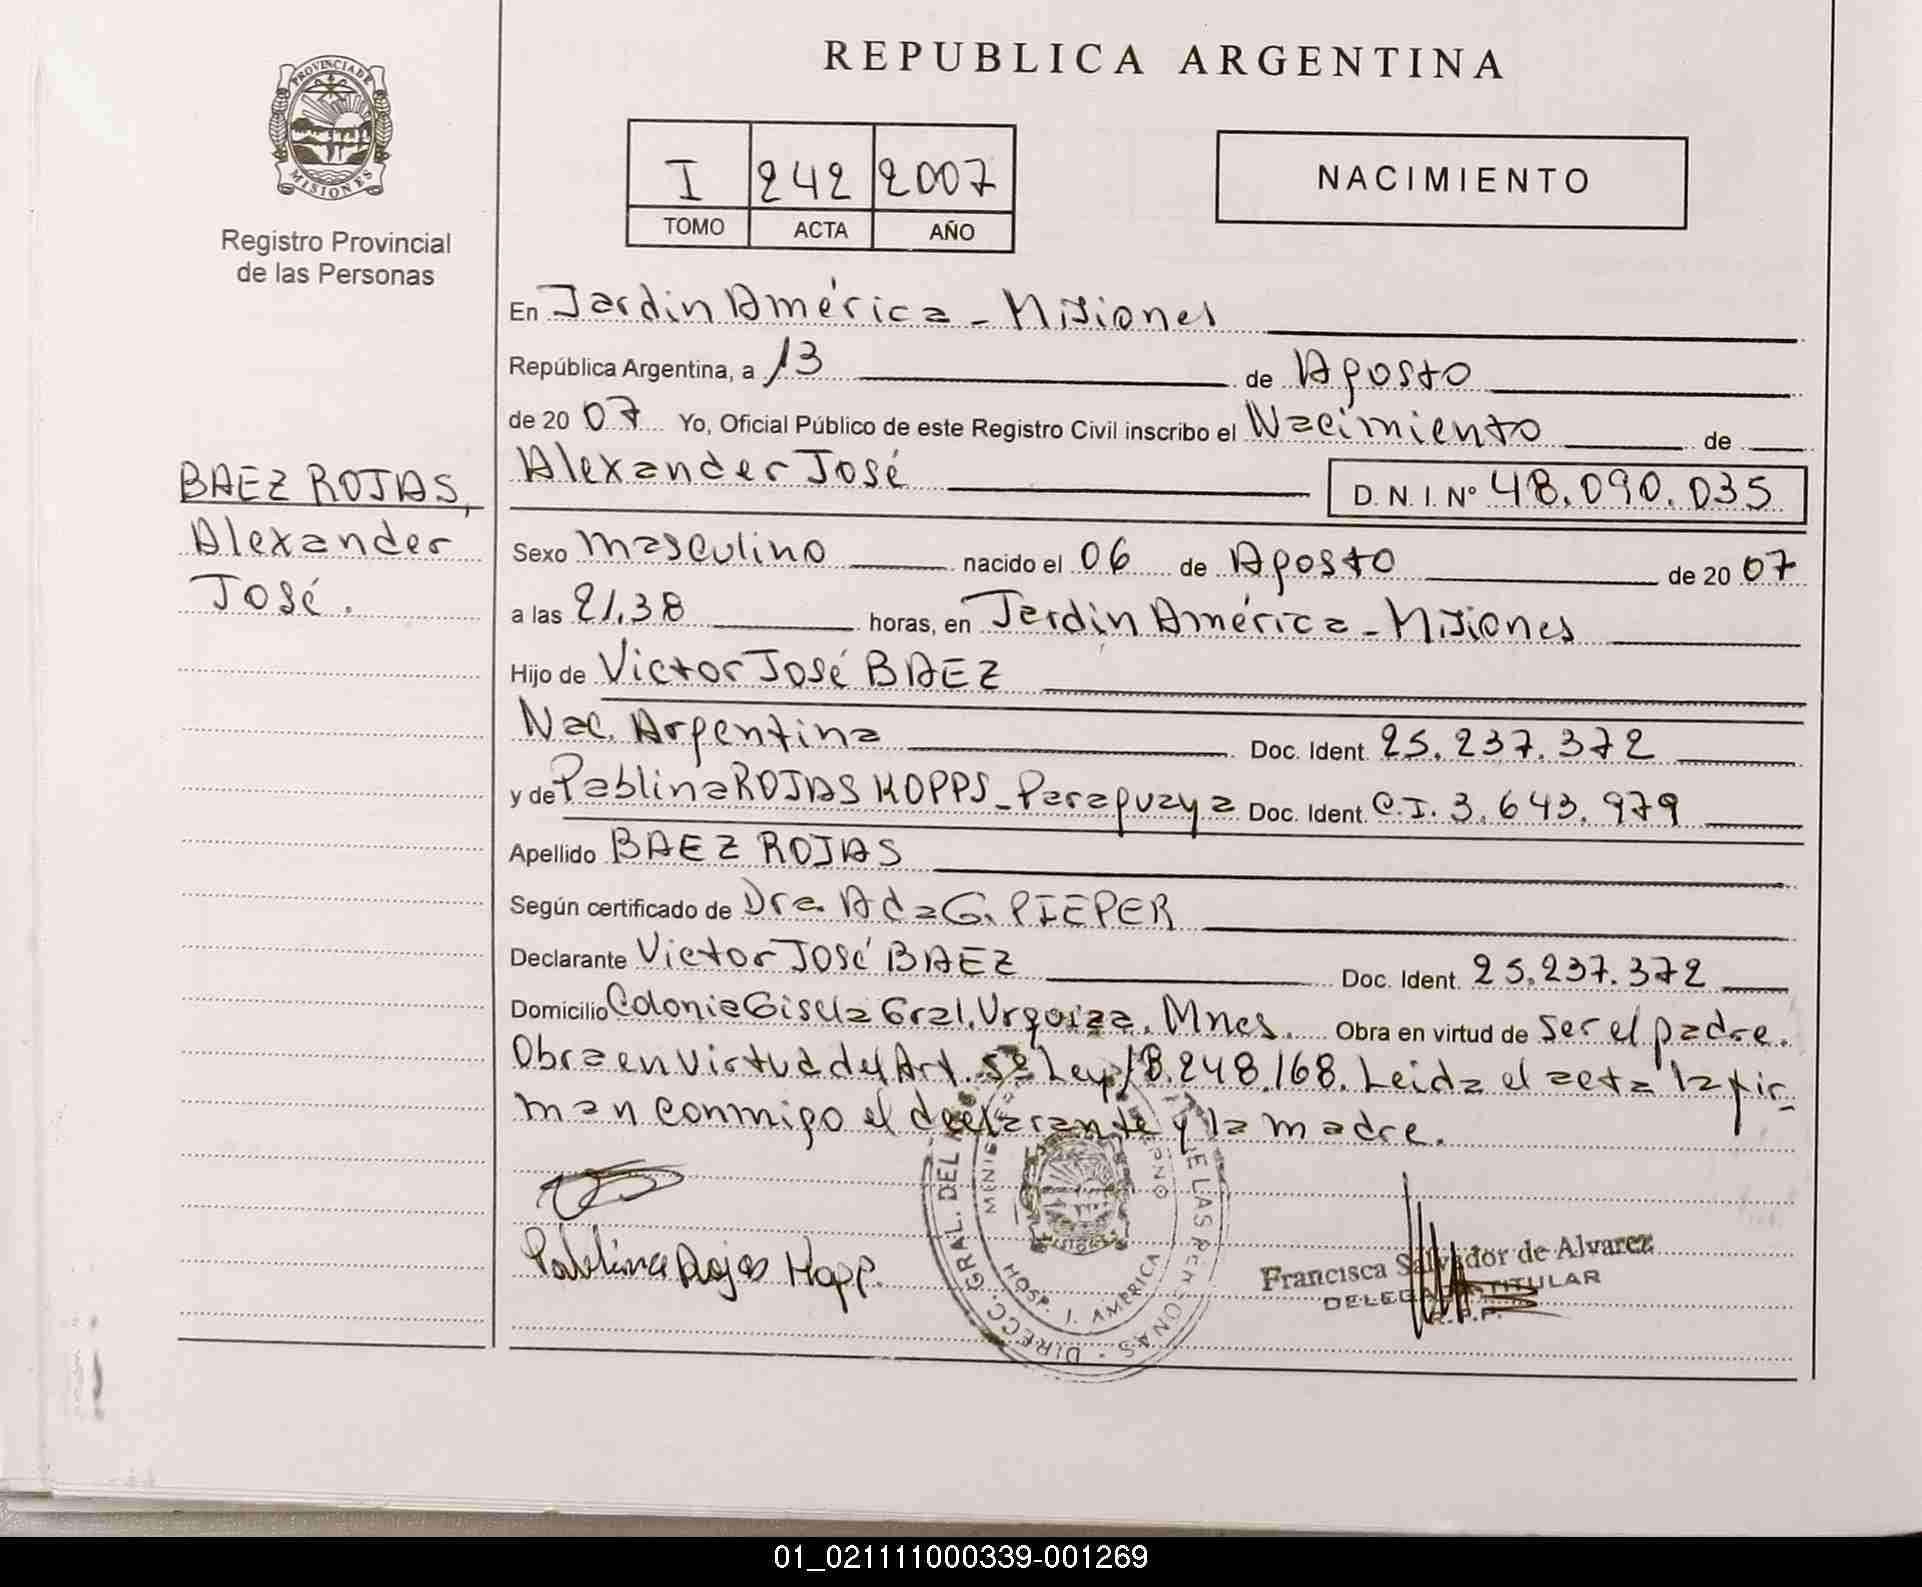 REPUBLICA ARGENTINA
PROVINCIA DE
MISIONES
Registro Provincial
de las Personas
I 242 2007
TOMO ACTA AÑO
NACIMIENTO
En Jardin América - Misiones
República Argentina, a 13 de Agosto
de 20 07 Yo, Oficial Público de este Registro Civil inscribo el Nacimiento de
Alexander José D. N. I. Nº 48.090.035
BAEZ ROJAS,
Alexander
José.
Sexo masculino nacido el 06 de Agosto de 20 07
a las 21,38 horas, en Jardin América - Misiones
Hijo de Victor José BAEZ
Nac. Argentina Doc. Ident. 25.237.372
y de Pablina ROJAS KOPPS - Paraguaya Doc. Ident. C.I. 3.643.979
Apellido BAEZ ROJAS
Según certificado de Dra. Ada G. PIEPER
Declarante Victor José BAEZ Doc. Ident. 25.237.372
Domicilio Colonia Gisela Gral. Urquiza. Mnes. Obra en virtud de ser el padre.
Obra en virtud del Art. 5º Ley 18.248.168. Leida el acta la fir-
man conmigo el declarante y la madre.
Pablina Rojas Kopp.
DIRECC. GRAL. DEL DE LAS PERSONAS
HOSP. J. AMERICA
Francisca Salvador de Alvarez
DELEGADA TITULAR
R.P.P.
01_021111000339-001269